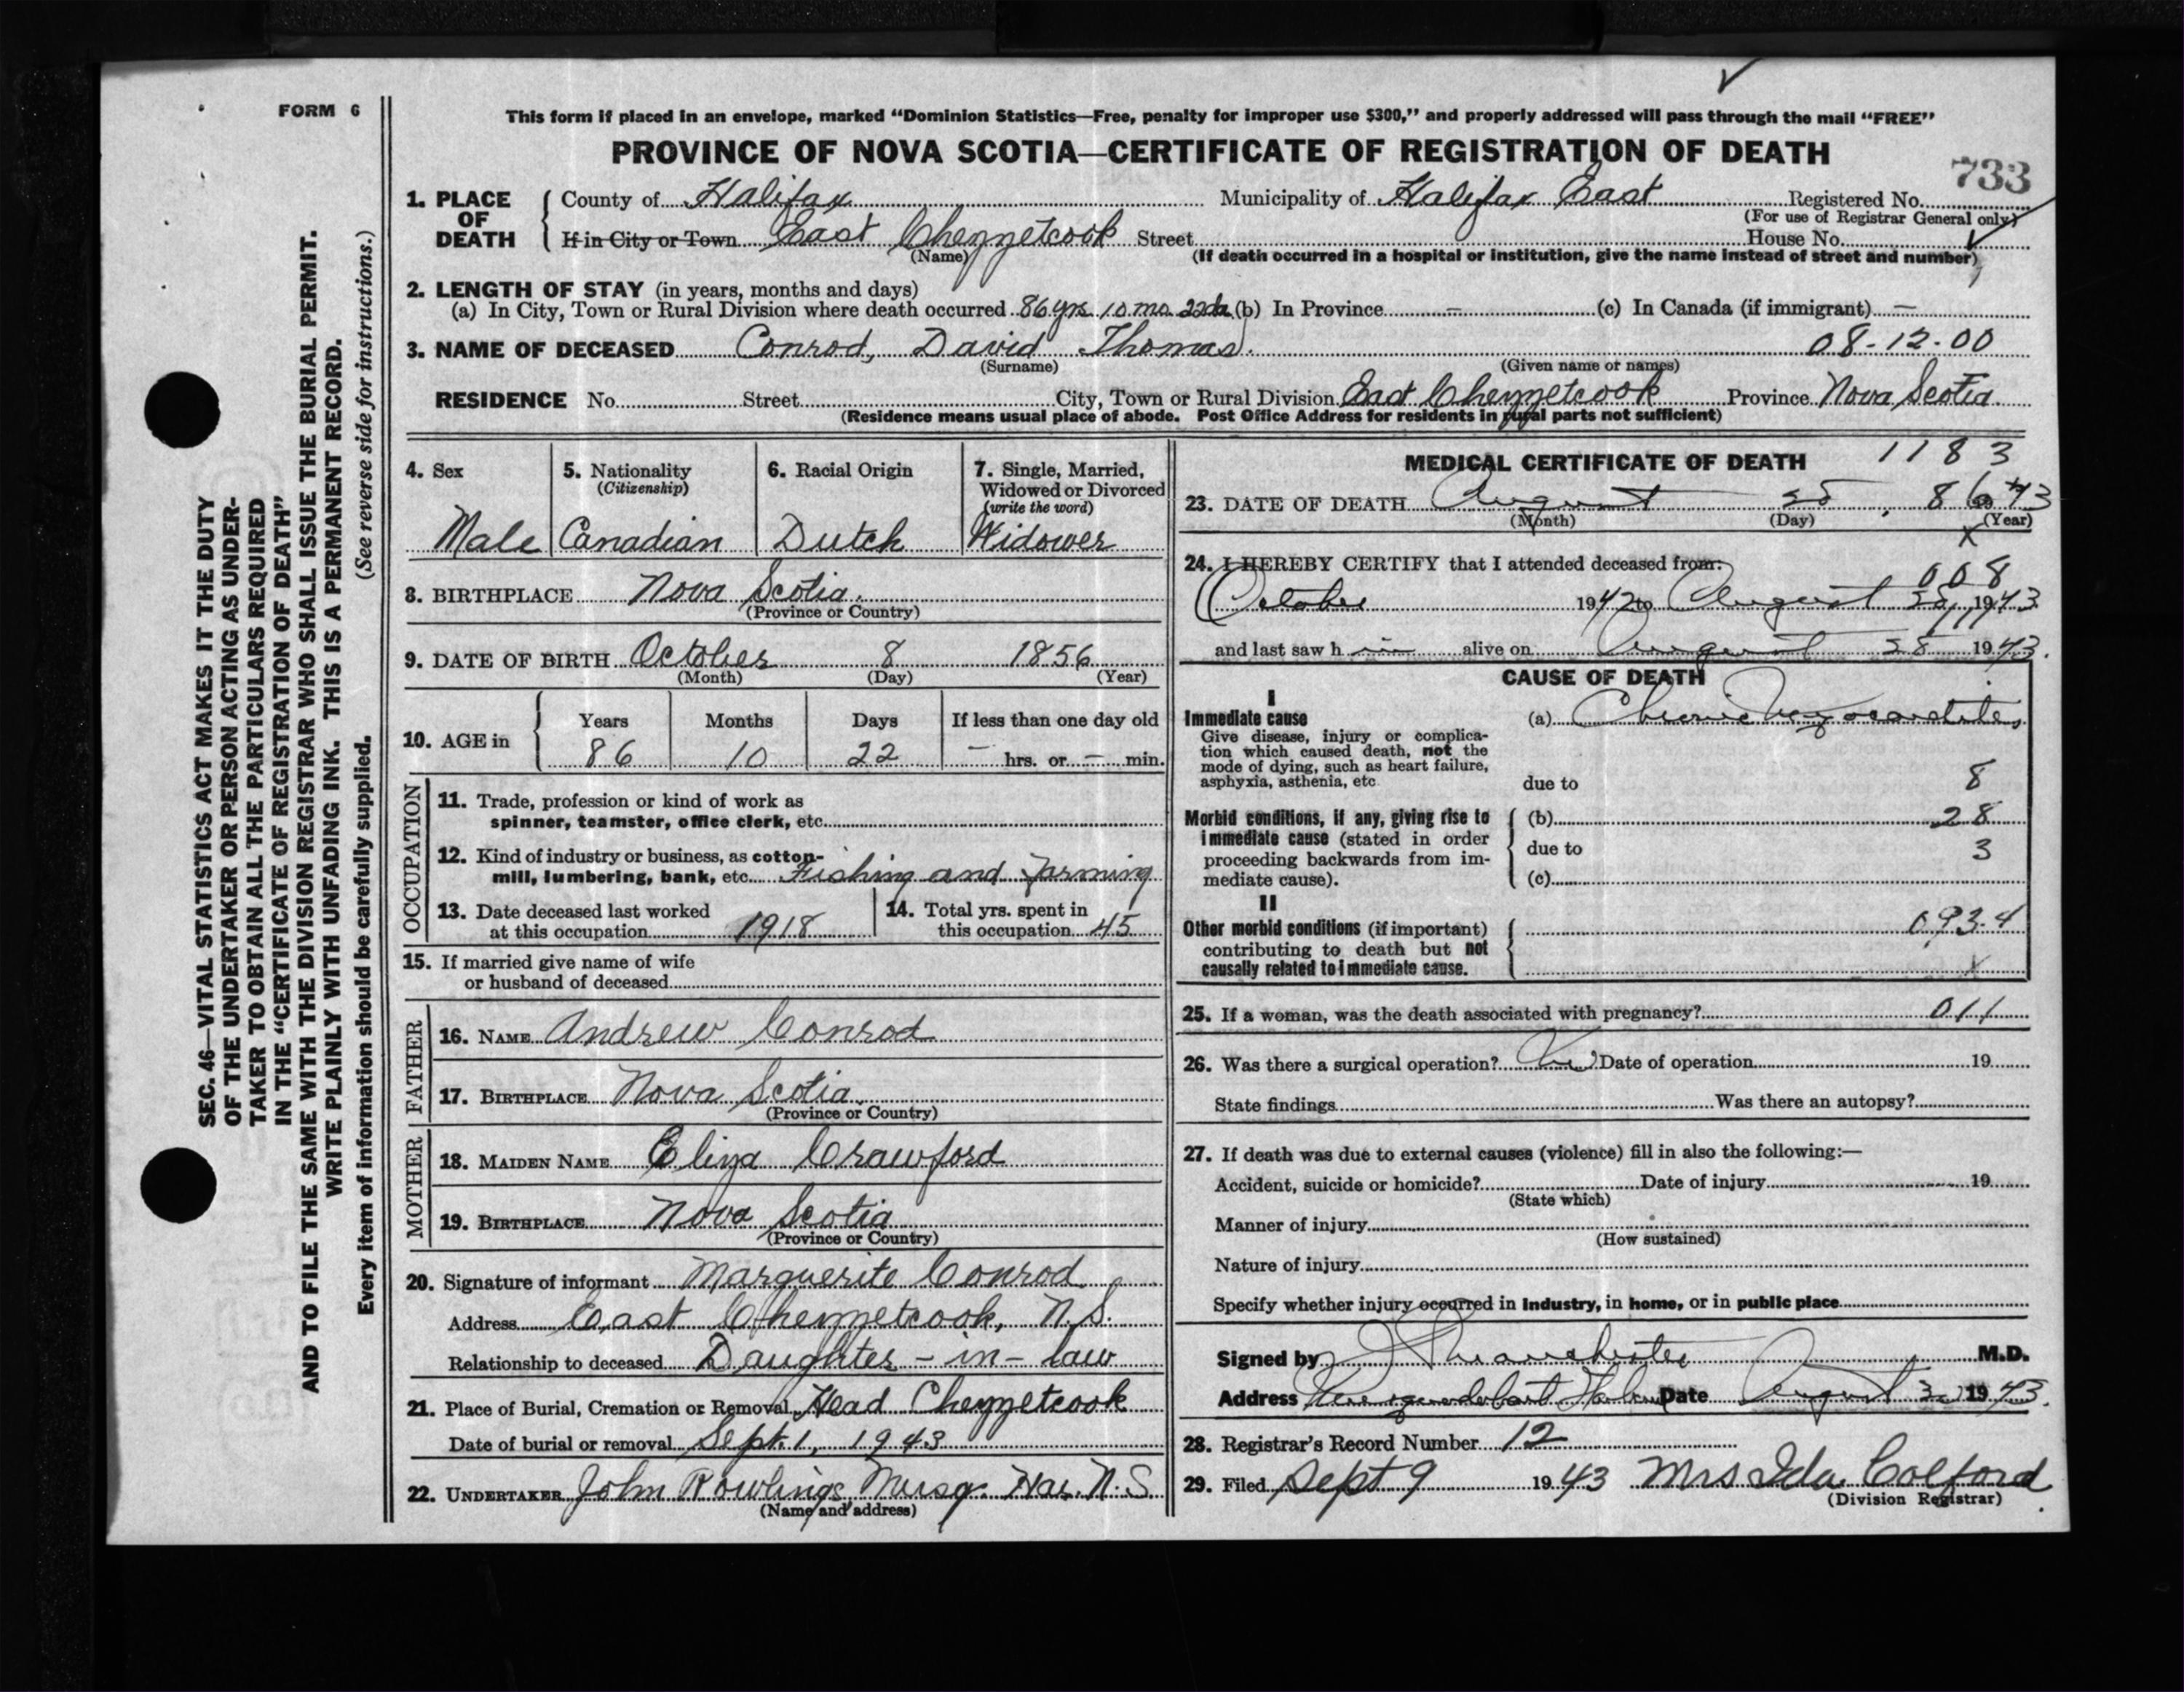 FORM 6
This form if placed in an envelope, marked "Dominion Statistics—Free, penalty for improper use $300," and properly addressed will pass through the mail "FREE"
PROVINCE OF NOVA SCOTIA—CERTIFICATE OF REGISTRATION OF DEATH
733
1. PLACE OF DEATH
County of Halifax Municipality of Halifax East Registered No.
(For use of Registrar General only)
If in City or Town East Chezzetcook Street House No.
(Name) (If death occurred in a hospital or institution, give the name instead of street and number)
2. LENGTH OF STAY (in years, months and days)
(a) In City, Town or Rural Division where death occurred 86 yrs 10 mo. 22 da (b) In Province — (c) In Canada (if immigrant) —
3. NAME OF DECEASED Conrod, David Thomas. 08-12-00
(Surname) (Given name or names)
RESIDENCE No. Street City, Town or Rural Division East Chezzetcook Province Nova Scotia.
(Residence means usual place of abode. Post Office Address for residents in rural parts not sufficient)
4. Sex
Male
5. Nationality
(Citizenship)
Canadian
6. Racial Origin
Dutch
7. Single, Married,
Widowed or Divorced
(write the word)
Widower
8. BIRTHPLACE Nova Scotia.
(Province or Country)
9. DATE OF BIRTH October 8 1856
(Month) (Day) (Year)
10. AGE in
Years Months Days If less than one day old
86 10 22 — hrs. or — min.
OCCUPATION
11. Trade, profession or kind of work as
spinner, teamster, office clerk, etc.
12. Kind of industry or business, as cotton-
mill, lumbering, bank, etc. Fishing and Farming
13. Date deceased last worked
at this occupation 1918
14. Total yrs. spent in
this occupation 45
15. If married give name of wife
or husband of deceased
FATHER
16. NAME Andrew Conrod
17. BIRTHPLACE Nova Scotia.
(Province or Country)
MOTHER
18. MAIDEN NAME Eliza Crawford
19. BIRTHPLACE Nova Scotia
(Province or Country)
20. Signature of informant Marguerite Conrod
Address East Chezzetcook, N.S.
Relationship to deceased Daughter-in-law
21. Place of Burial, Cremation or Removal Head Chezzetcook
Date of burial or removal Sept. 1, 1943
22. UNDERTAKER John Rowlings Musq. Har. N.S.
(Name and address)
MEDICAL CERTIFICATE OF DEATH 1183
23. DATE OF DEATH August , 86 43
(Month) (Day) (Year)
x
24. I HEREBY CERTIFY that I attended deceased from:
008
October 1942 to August 1943
and last saw h im alive on August 28 1943.
CAUSE OF DEATH
I
Immediate cause
Give disease, injury or complica-
tion which caused death, not the
mode of dying, such as heart failure,
asphyxia, asthenia, etc
(a) Chronic Myocarditis
due to 8
Morbid conditions, if any, giving rise to
immediate cause (stated in order
proceeding backwards from im-
mediate cause).
(b) 28
due to 3
(c)
II
Other morbid conditions (if important)
contributing to death but not
causally related to immediate cause.
093.4
x
25. If a woman, was the death associated with pregnancy? 011
26. Was there a surgical operation? No Date of operation 19
State findings Was there an autopsy?
27. If death was due to external causes (violence) fill in also the following:—
Accident, suicide or homicide? Date of injury 19
(State which)
Manner of injury
(How sustained)
Nature of injury
Specify whether injury occurred in industry, in home, or in public place
Signed by M.D.
Address Date August 1943.
28. Registrar's Record Number 12
29. Filed Sept 9 1943 Mrs Ida Colford
(Division Registrar)
SEC. 46—VITAL STATISTICS ACT MAKES IT THE DUTY
OF THE UNDERTAKER OR PERSON ACTING AS UNDER-
TAKER TO OBTAIN ALL THE PARTICULARS REQUIRED
IN THE "CERTIFICATE OF REGISTRATION OF DEATH"
AND TO FILE THE SAME WITH THE DIVISION REGISTRAR WHO SHALL ISSUE THE BURIAL PERMIT.
WRITE PLAINLY WITH UNFADING INK. THIS IS A PERMANENT RECORD.
Every item of information should be carefully supplied. (See reverse side for instructions.)